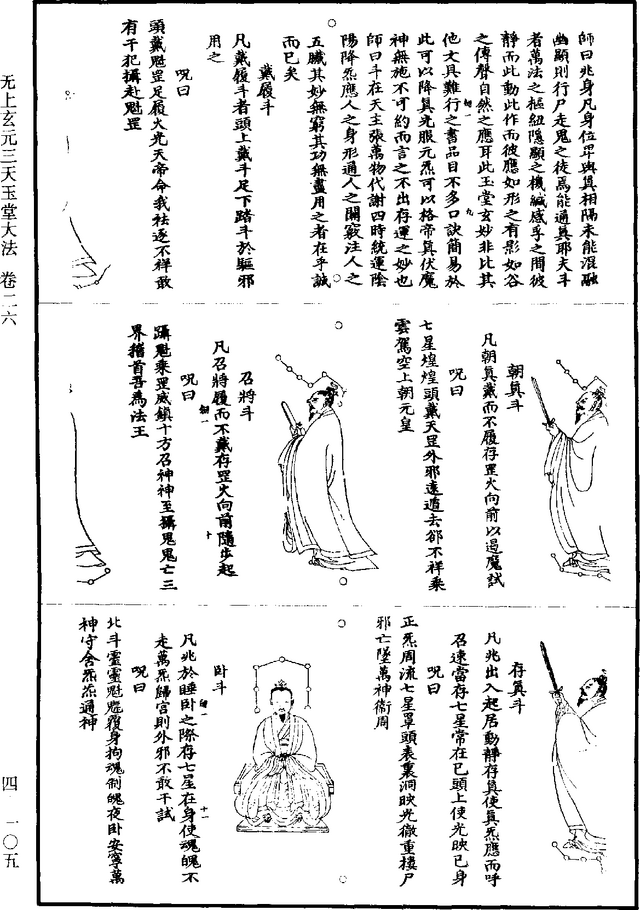 師曰兆身凡身位卑與真相隔未能混融
幽顯則行尸走鬼之徒焉能通真耶夫斗
者萬法之樞紐隱顯之機緘感孚之間彼
靜而此動此作而彼應如形之有影如谷
之傳聲自然之應耳此玉堂玄妙非比其
他文具難行之書品目不多口訣簡易於
此可以降真光服元炁可以格帝真伏魔
神無施不可約而言之不出存運之妙也
師曰斗在天主張萬物代謝四時統運陰
陽降炁應人之身形通人之關竅注人之
五臟其妙無窮其功無盡用之者在乎誠
而已矣
戴履斗
凡戴履斗者頭上戴斗足下踏斗於驅邪
用之
呪曰
頭戴魁罡足履火光天帝命我祛逐不祥敢
有干犯攝赴魁罡
朝真斗
凡朝真戴而不履存罡火向前以過魔試
呪曰
七星煌煌頭戴天罡外邪遠遁去卻不祥乘
雲駕空上朝元皇
召將斗
凡召將履而不戴存罡火向前隨步起
呪曰
躡魁乘罡威鎮十方召神神至攝鬼鬼亡三
界稽首吾為法王
存真斗
凡兆出入起居動靜存真使真炁應而呼
召速當存七星常在已頭上使光映已身
呪曰
正炁周流七星罩頭表裏洞映光徹重樓尸
邪亡墜萬神衞周
卧斗
凡兆於睡卧之際存七星在身使魂魄不
走萬炁歸宮則外邪不敢干試
呪曰
北斗靈靈魁魁覆身拘魂制魄夜卧安寧萬
神守舍炁炁通神
无上玄元三天玉堂大法 卷二六
四 一〇五